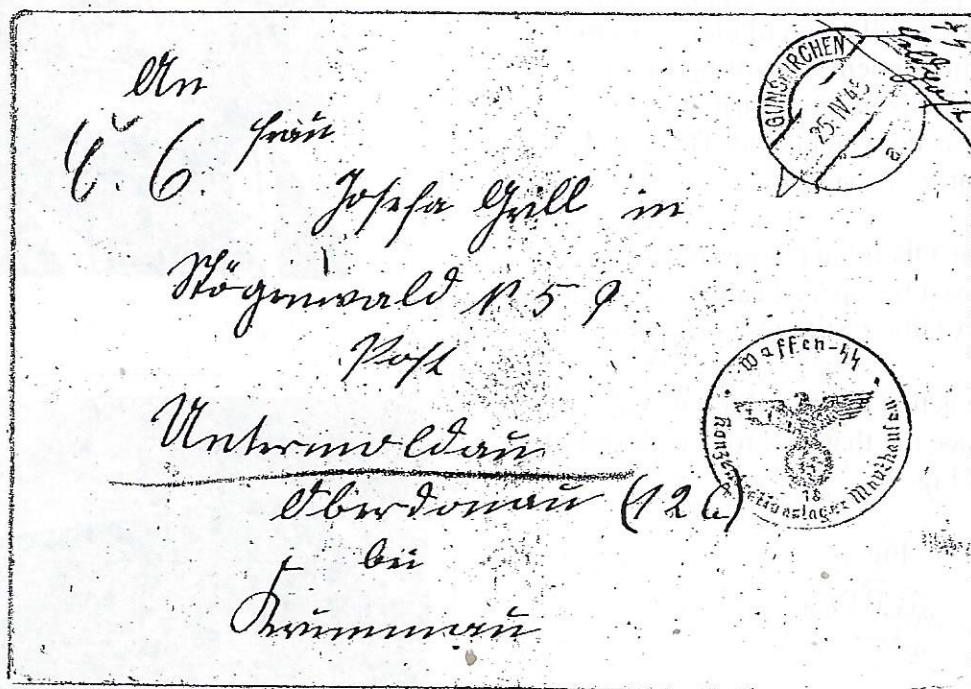 An
Frau
Josefa Grill in
Stögenwald N 59
Post
Untermoldau
Oberdonau (12a)
bei
Krummau
GUNSKIRCHEN
25.IV.45
a
Waffen-SS
Konzentrationslager Mauthausen
18